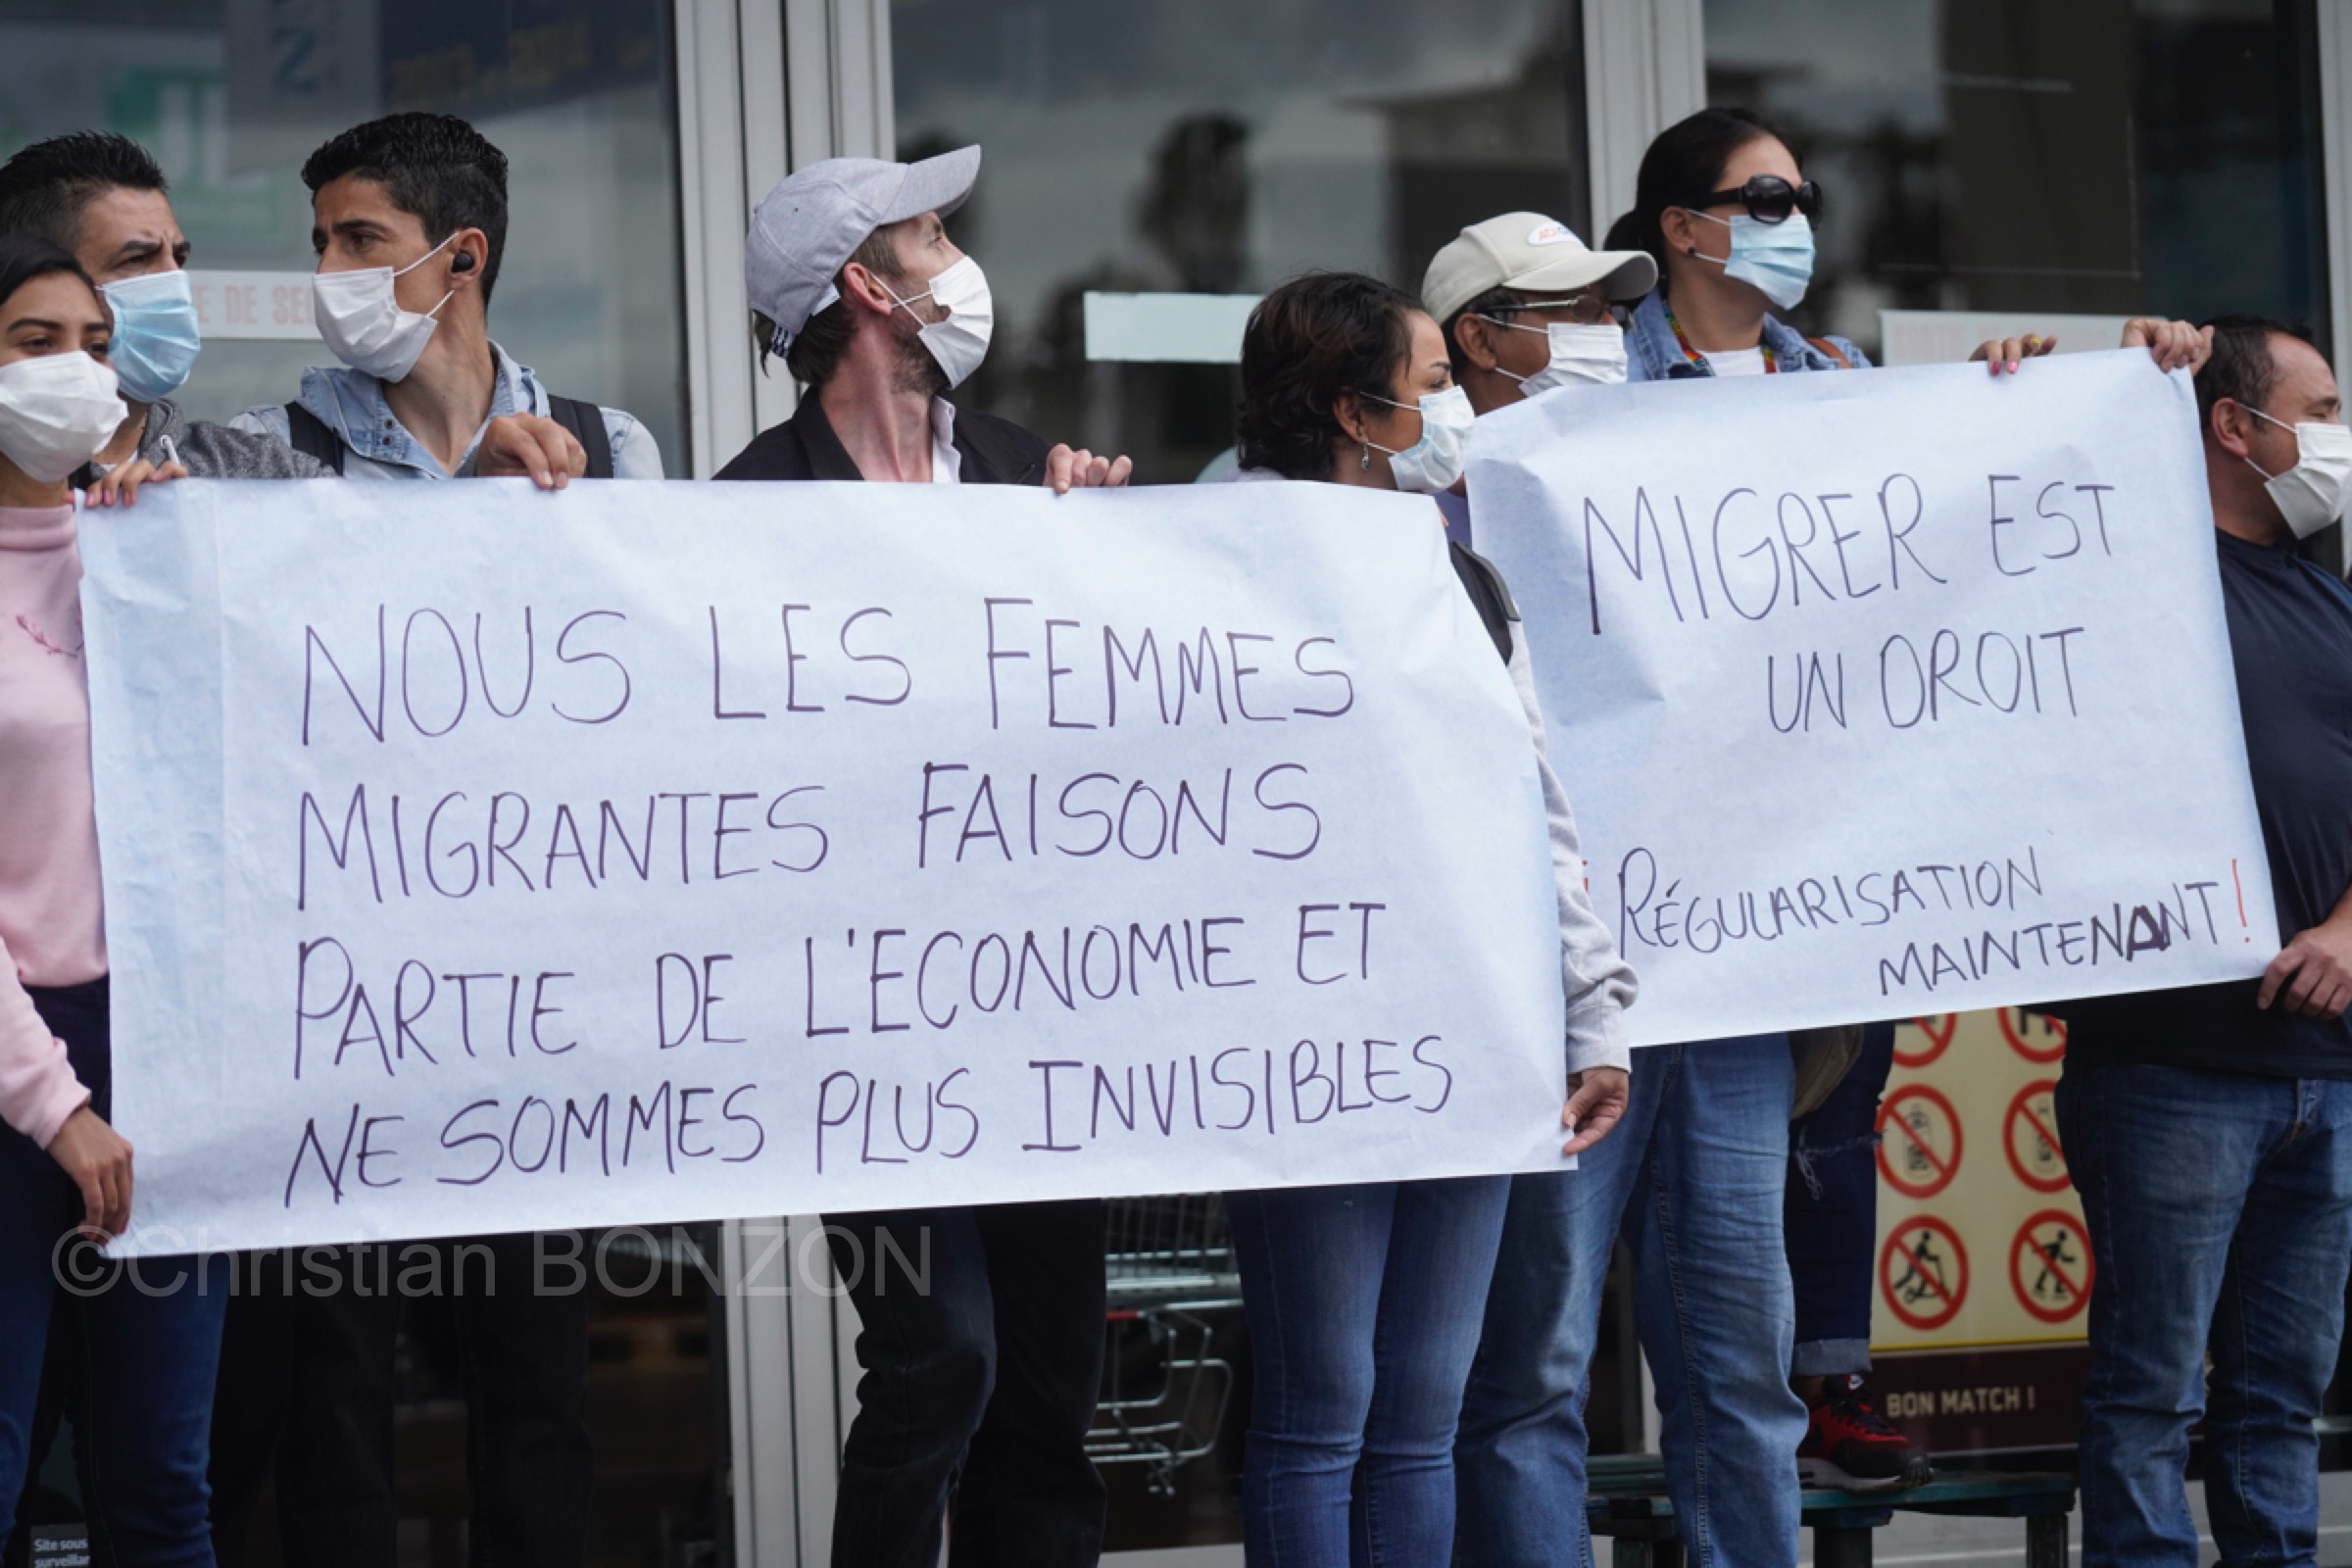 NOUS LES FEMMES
MIGRANTES FAISONS
PARTIE DE L'ECONOMIE ET
NE SOMMES PLUS INVISIBLES
MIGRER EST
UN DROIT
¡ RÉGULARISATION
MAINTENANT !
©Christian BONZON
BON MATCH !
E DE SE
Site sous
surveillan